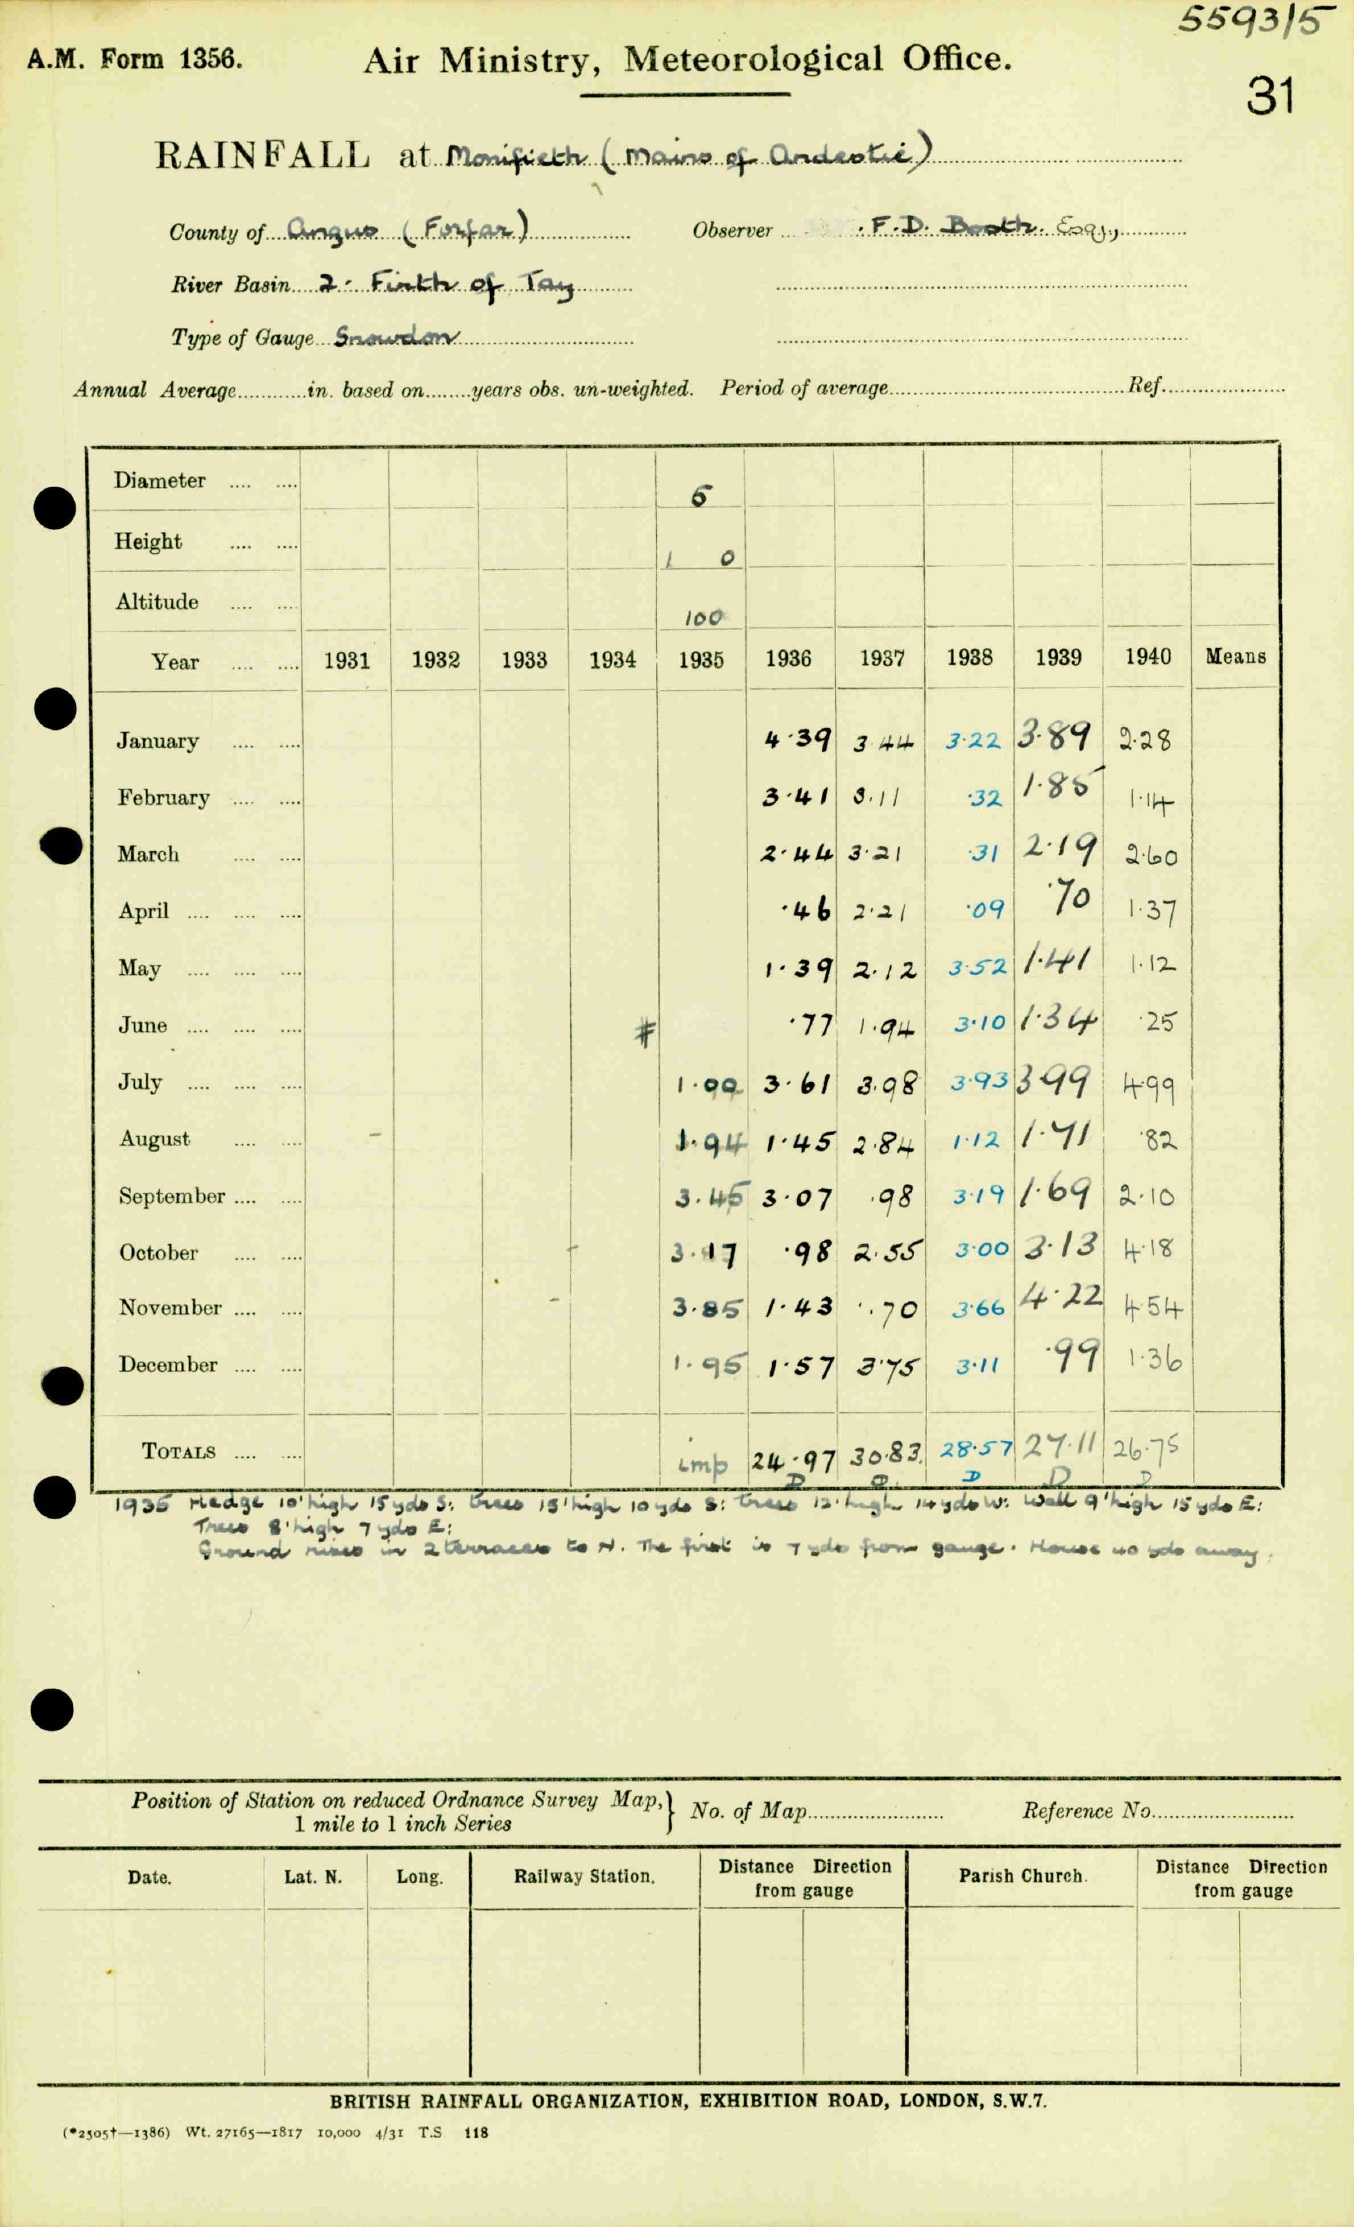 5593/5
A.M. Form 1356. Air Ministry, Meteorological Office.
31
RAINFALL at Monifieth (Mains of Ardestie)
County of Angus (Forfar) Observer F.D. Booth. Esq.,
River Basin 2. Firth of Tay
Type of Gauge Snowdon
Annual Average in. based on years obs. un-weighted. Period of average Ref.
Diameter .... .... 5
Height .... .... 1 0
Altitude .... .... 100
Year .... .... 1931 1932 1933 1934 1935 1936 1937 1938 1939 1940 Means
January .... .... 4.39 3.44 3.22 3.89 2.28
February .... .... 3.41 3.11 .32 1.85 1.14
March .... .... 2.44 3.21 .31 2.19 2.60
April .... .... .... .46 2.21 .09 .70 1.37
May .... .... .... 1.39 2.12 3.52 1.41 1.12
June .... .... .... # .77 1.94 3.10 1.34 .25
July .... .... .... 1.00 3.61 3.98 3.93 3.99 4.99
August .... .... 1.94 1.45 2.84 1.12 1.71 .82
September .... .... 3.45 3.07 .98 3.19 1.69 2.10
October .... .... 3.17 .98 2.55 3.00 3.13 4.18
November .... .... 3.85 1.43 .70 3.66 4.22 4.54
December .... .... 1.95 1.57 3.75 3.11 .99 1.36
TOTALS .... .... imp 24.97 30.83 28.57 27.11 26.75
D D D D D
1935 Hedge 10' high 15 yds S: trees 15' high 10 yds S: trees 12' high 14 yds W: Wall 9' high 15 yds E:
Trees 8' high 7 yds E:
Ground rises in 2 terraces to N. The first is 7 yds from gauge. House 40 yds away.
Position of Station on reduced Ordnance Survey Map, } No. of Map Reference No.
1 mile to 1 inch Series
Date. Lat. N. Long. Railway Station. Distance Direction from gauge Parish Church. Distance Direction from gauge
BRITISH RAINFALL ORGANIZATION, EXHIBITION ROAD, LONDON, S.W.7.
(*2505†—1386) Wt. 27165—1817 10,000 4/31 T.S 118